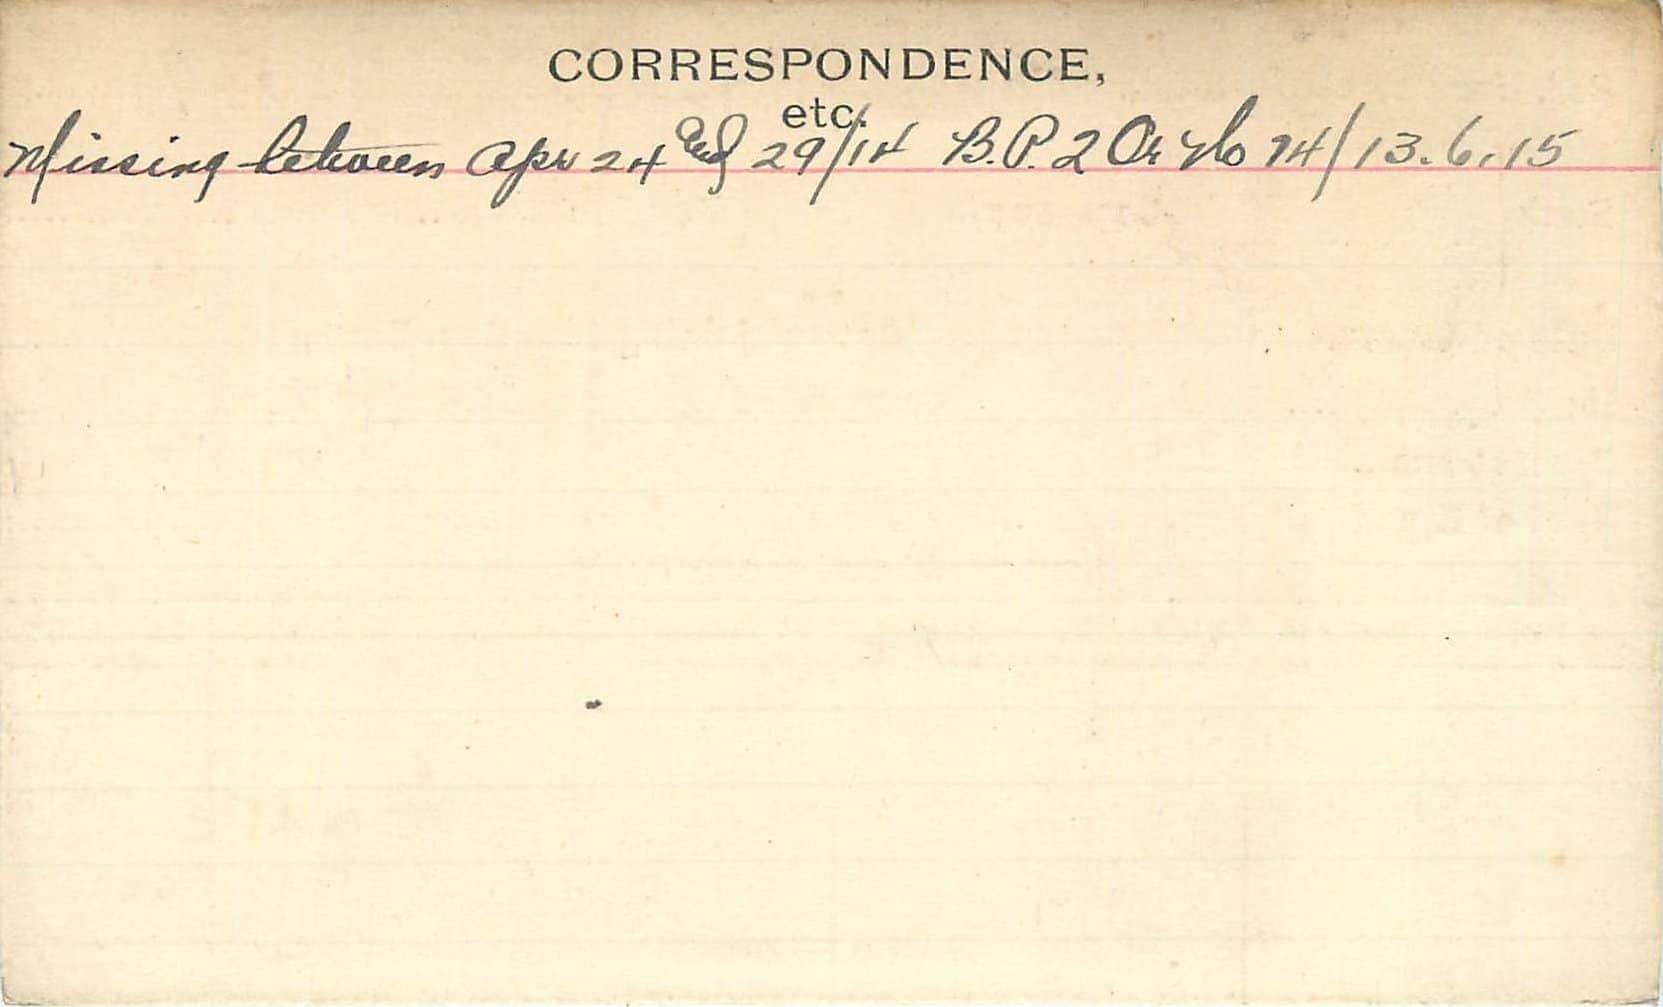 CORRESPONDENCE,
etc.
Missing between Apr 24 and 29/14 B.P. 2 Or No 74/13.6.15